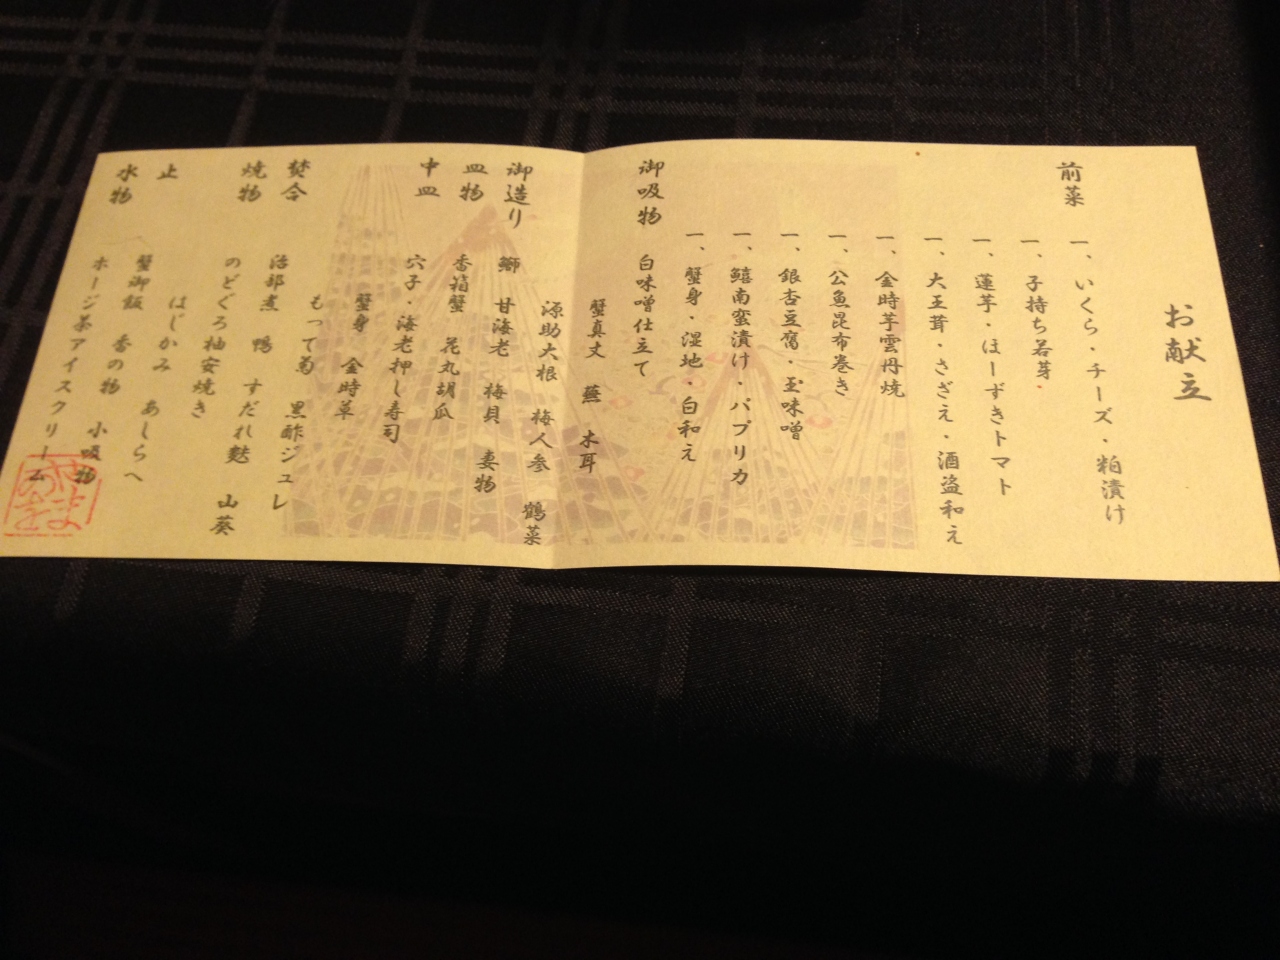 お献立
前菜
一、いくら・チーズ・粕漬け
一、子持ち若芽・
一、蓮芋・ほーずきトマト
一、大王茸・さざえ・酒盗和え
一、金時芋雲丹焼
一、公魚昆布巻き
一、銀杏豆腐・玉味噌
一、鱚南蛮漬け・パプリカ
一、蟹身・湿地・白和え
御吸物 白味噌仕立て
蟹真丈 蕪 木耳
源助大根 梅人参 鶴菜
御造り 鰤 甘海老 梅貝 妻物
皿物 香箱蟹 花丸胡瓜
中皿 穴子・海老押し寿司
蟹身 金時草
もって菊 黒酢ジュレ
焚合 治部煮 鴨 すだれ麩 山葵
焼物 のどぐろ柚安焼き
はじかみ あしらへ
止 蟹御飯 香の物 小吸物
水物 ホージ茶アイスクリーム